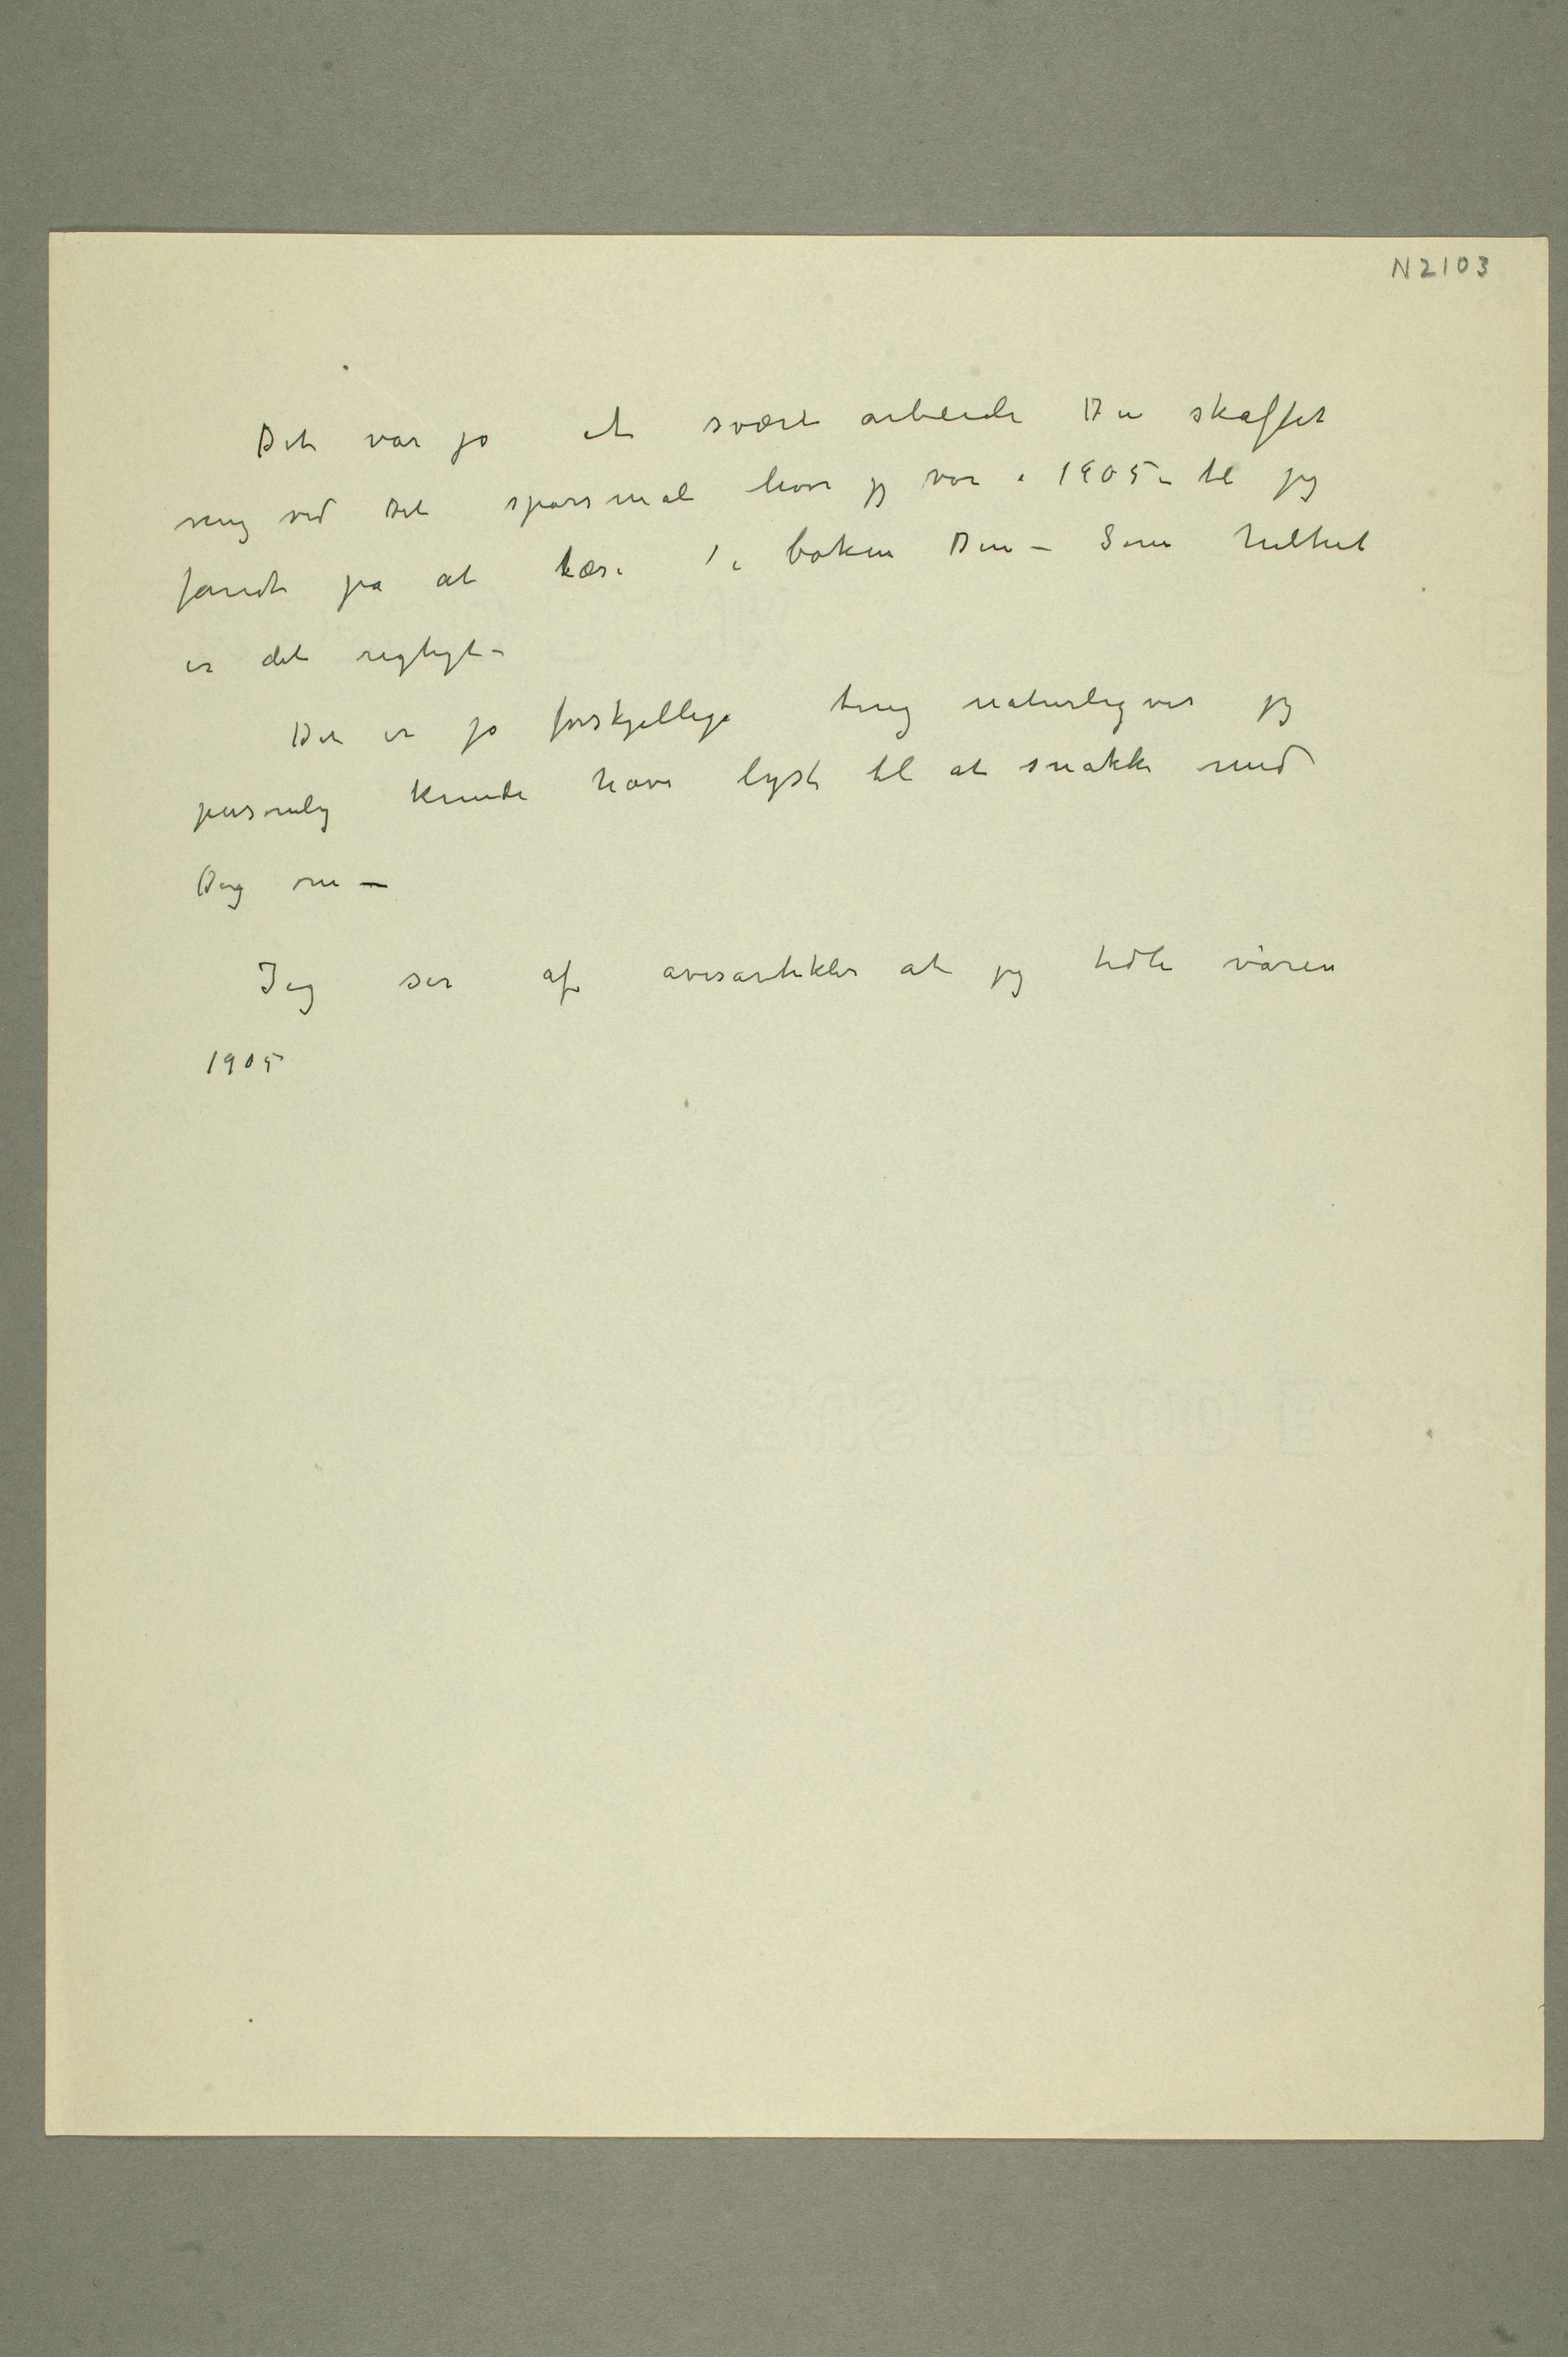 N 2103
Det var jo et svært arbeide Du skaffet
mig ved det spørsmål hvor jeg var i 1905 – til jeg
fandt på at læse i boken Din – Som helhet
er det rigtigt –
Det er jo forskjellige ting naturligvis jeg
personlig kunde have lyst til at snakke med
Dig om –
Jeg ser af avisartikler at jeg våren
1905